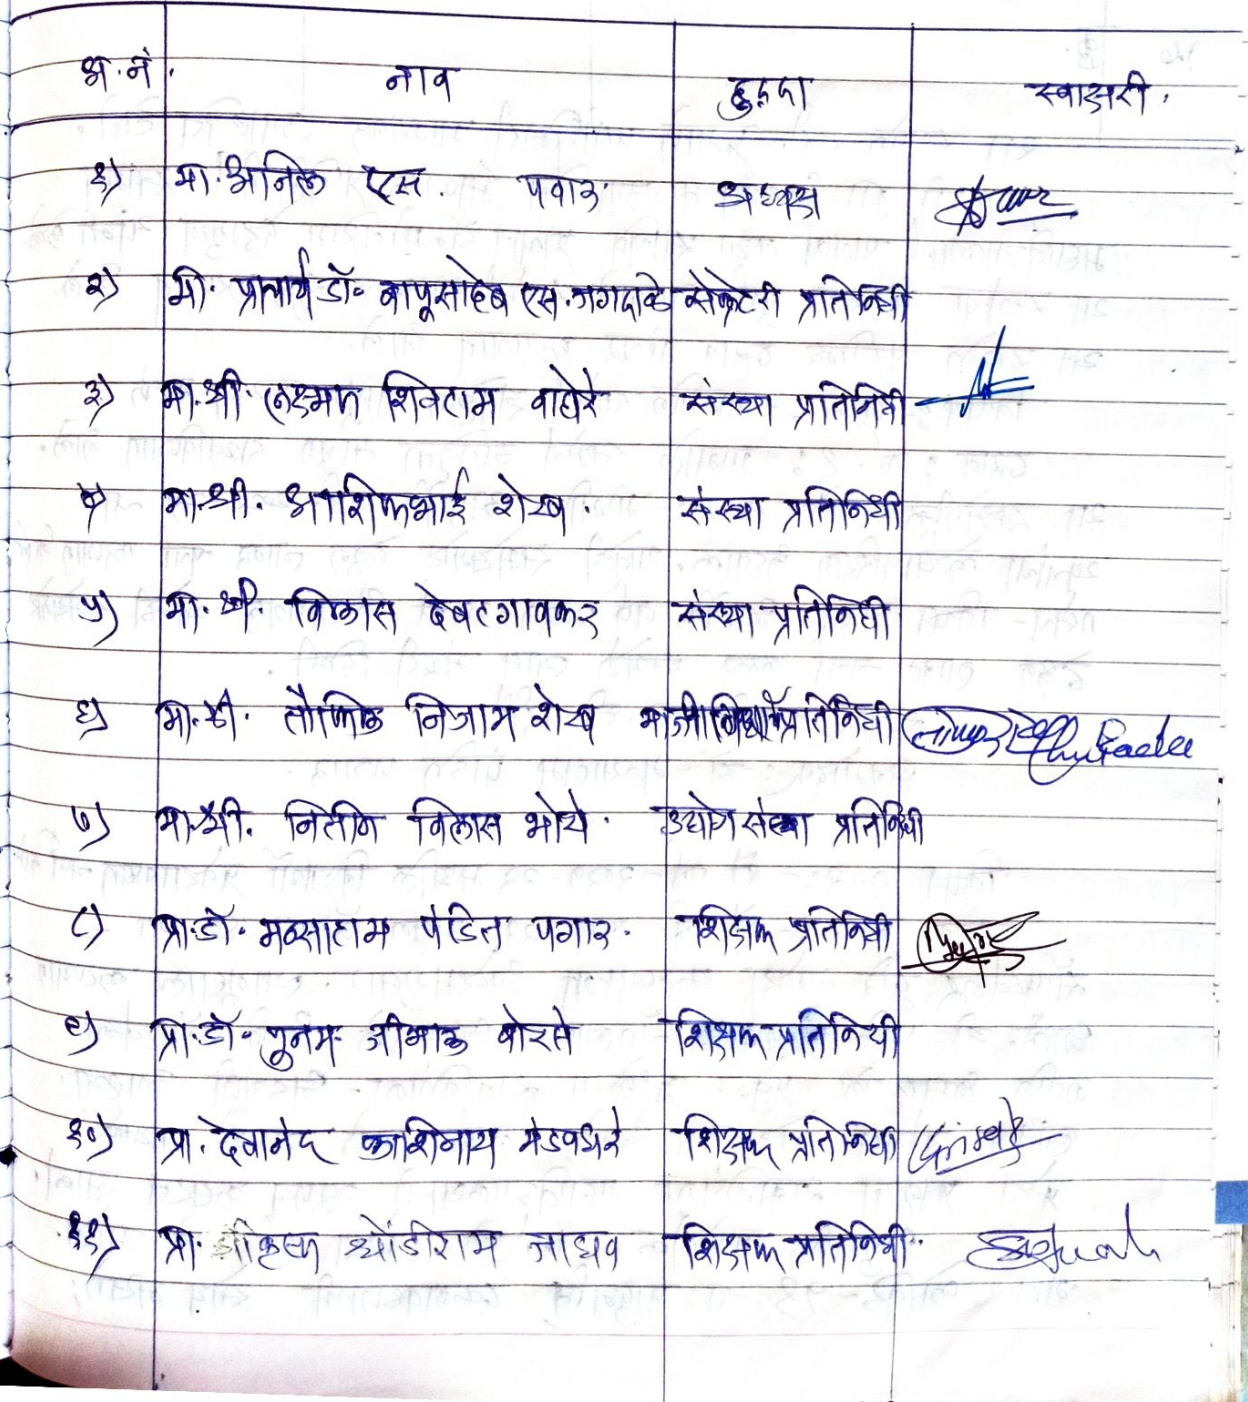 अ.नं. नाव हुद्दा स्वाक्षरी.
१) मा. अनिल एस. पवार अध्यक्ष
२) मा. प्राचार्य डॉ. बापूसाहेब एस. जगदाळे सेक्रेटरी प्रतिनिधी
३) मा. श्री. लक्ष्मण शिवराम वाहोरे संस्था प्रतिनिधी
४) मा. श्री. आशिकभाई शेख. संस्था प्रतिनिधी
५) मा. श्री. विलास देवटगावकर संस्था प्रतिनिधी
६) मा. श्री. तौफिक निजाम शेख माजी प्रतिनिधी
७) मा. श्री. नितीन विलास भोये. उद्योग संस्था प्रतिनिधी
८) प्रा. डॉ. मन्साराम पंडित पगार. शिक्षक प्रतिनिधी
९) प्रा. डॉ. पुनम बोरसे शिक्षक प्रतिनिधी
१०) प्रा. देवानंद काशिनाथ मंडवधरे शिक्षक प्रतिनिधी
११) प्रा. श्रीकृष्ण धोंडीराम जाधव शिक्षक प्रतिनिधी.